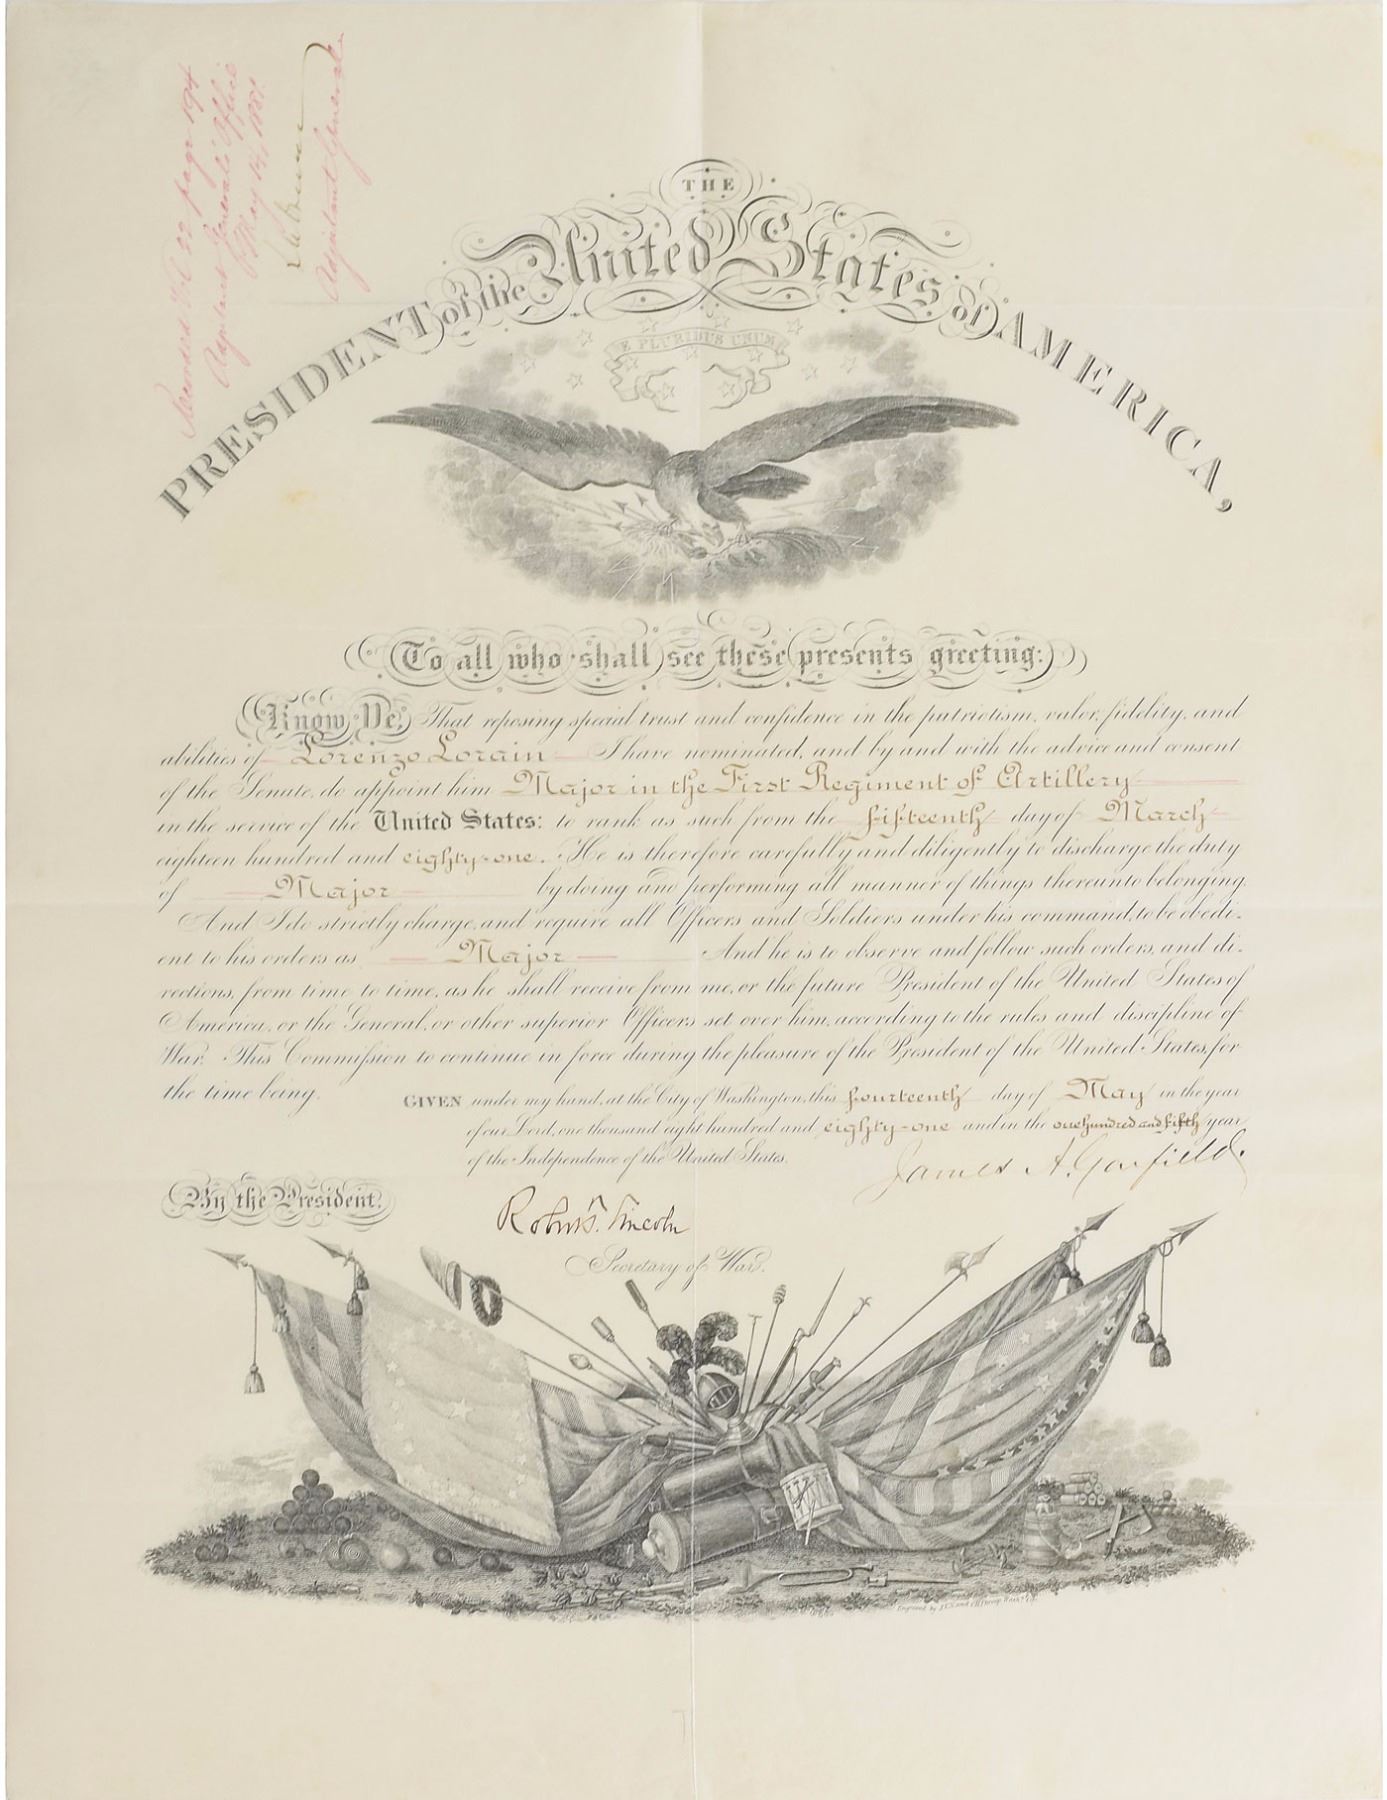 Recorded Vol 22 page 194
Adjutant General's Office
May 14, 1881.
Adjutant General
THE
PRESIDENT of the United States of AMERICA,
E PLURIBUS UNUM
To all who shall see these presents greeting:
Know Ye, That reposing special trust and confidence in the patriotism, valor, fidelity, and
abilities of Lorenzo Lorain I have nominated, and by and with the advice and consent
of the Senate, do appoint him Major in the First Regiment of Artillery
in the service of the United States: to rank as such from the fifteenth day of March
eighteen hundred and eighty-one. He is therefore carefully and diligently to discharge the duty
of Major by doing and performing all manner of things thereunto belonging.
And I do strictly charge, and require all Officers and Soldiers under his command, to be obedi-
ent to his orders as Major And he is to observe and follow such orders, and di-
rections, from time to time, as he shall receive from me, or the future President of the United States of
America, or the General, or other superior Officers set over him, according to the rules and discipline of
War. This Commission to continue in force during the pleasure of the President of the United States, for
the time being.
GIVEN under my hand, at the City of Washington, this fourteenth day of May in the year
of our Lord, one thousand eight hundred and eighty-one and in the one hundred and fifth year
of the Independence of the United States.
James A. Garfield
By the President.
Robert T. Lincoln
Secretary of War.